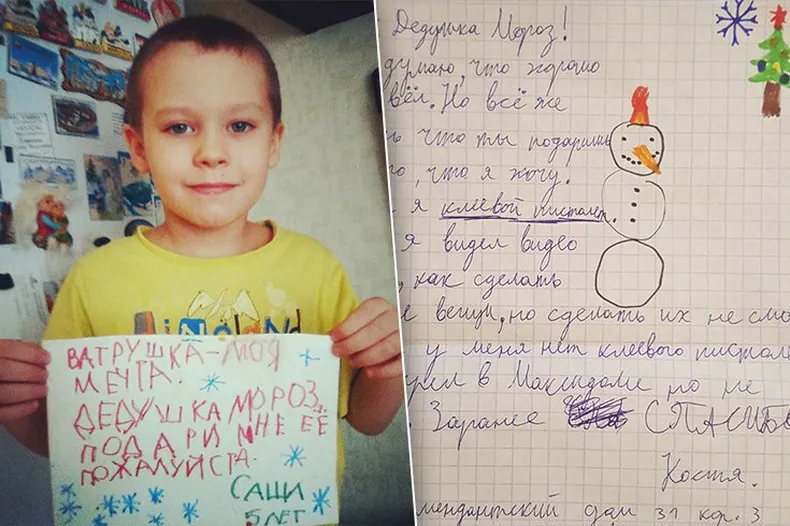 ВАТРУШКА – МОЯ
МЕЧТА.
ДЕДУШКА МОРОЗ,
ПОДАРИ МНЕ ЕЁ
ПОЖАЛУЙСТА.
САШИ
5 ЛЕТ
Дедушка Мороз!
думаю, что хорошо
вёл. Но всё же
что ты подаришь
, что я хочу.
я клеевой пистолет.
я видел видео
, как сделать
е вещи, но сделать их не смо
у меня нет клеевого пистоле
в Максидоме но не
. Заранее СПАСИБО
Костя.
мендантский дом 31 кв. 3